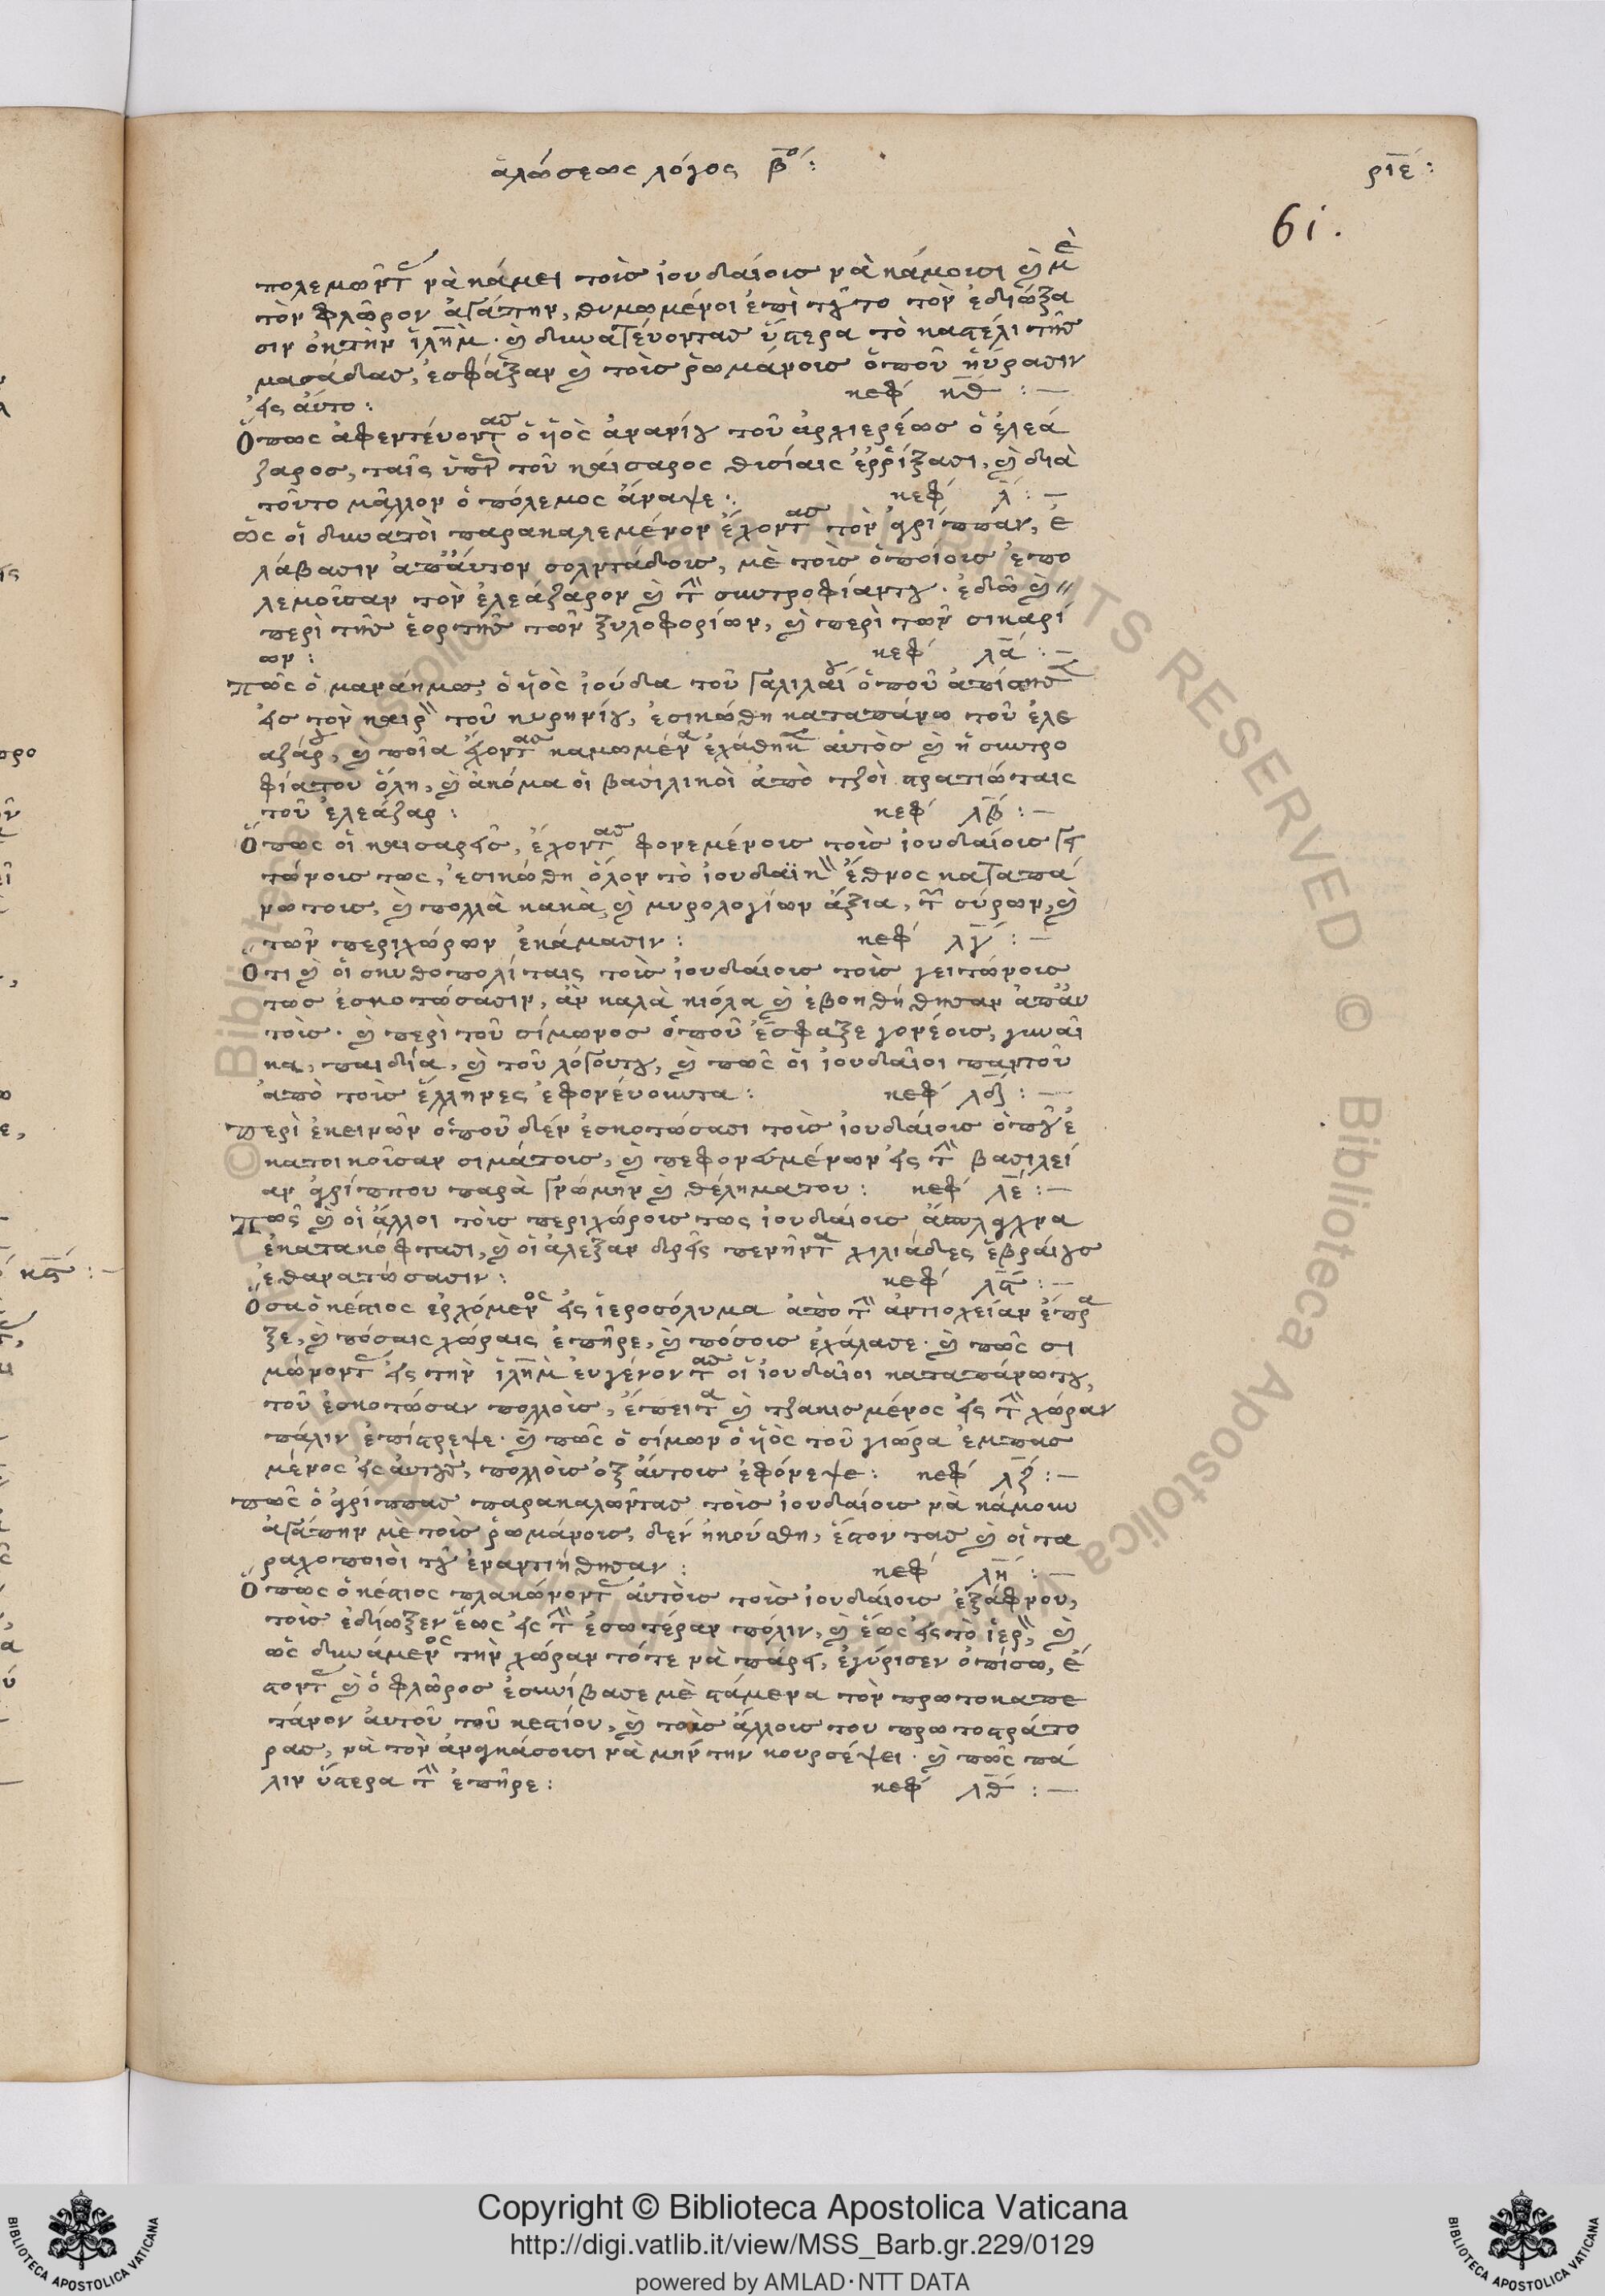 ἁλώσεως λόγος β^ον :
ριε :
61.
πολεμῶντας νὰ κάμει τοὺς ἰουδαίους νὰ κάμουσι καὶ μὲ
τὸν φλῶρον ἀγάπην, θυμωμένοι ἐπὶ τοῦτο τὸν ἐδιώξα
σιν ἐκ τὴν ἱλὴμ. καὶ δυναστεύοντας ὕστερα τὸ καστέλι τῆς
μασάδας, ἐσφάξαν καὶ τοὺς ῥωμάνους ὁποῦ ηὕρασιν
εἰς αὐτό : κεφ κθ : —
Ὅπως ἀφεντεύοντας ὁ ὑϊὸς ἀνανίου τοῦ ἀρχιερέως ὁ ἐλεά
ζαρος, ταῖς ὑπὲρ τοῦ καίσαρος θυσίαις ἐρρίξασι, καὶ διὰ
τοῦτο μᾶλλον ὁ πόλεμος ἄναψε : κεφ λ : —
ὡς οἱ δυνατοὶ παρακαλεμένον ἔχοντας τὸν ἀγρίππαν, ἐ
λάβασιν ἀπαὐτον σολντάδους, μὲ τοὺς ὁποίους ἐπο
λεμοῦσαν τὸν ἐλεάζαρον καὶ τὴν συντροφίαντου. ἐδῶ καὶ
περὶ τῆς ἑορτῆς τῶν ξυλοφορίων, καὶ περὶ τῶν σικαρί
ων : κεφ λα : —
πῶς ὁ μανάημος, ὁ ὑϊὸς ἰούδα τοῦ γαλιλαίου ὁποῦ ἀπίστησε
εἰς τὸν καιρὸν τοῦ κυρηνίου, ἐσικώθη καταπάνω τοῦ ἐλε
αζάρου, καὶ ποῖα ἔχοντας καμωμένα ἐχάθηκε αὐτὸς καὶ ἡ συντρο
φίατου ὅλη, καὶ ἀκόμα οἱ βασιλικοὶ ἀπὸ τζοὶ στρατιώταις
τοῦ ἐλεάζαρ : κεφ λβ : —
Ὅπως οἱ καισαρεῖς, ἔχοντας φονεμένους τοὺς ἰουδαίους γει
τώνους τως, ἐσικώθη ὅλον τὸ ἰουδαϊκὸν ἔθνος καταπά
νωτους, καὶ πολλὰ κακὰ, καὶ μυρολογίων ἄξια, τῶν σύρων, καὶ
τῶν περιχώρων ἐκάμασιν : κεφ λγ : —
Ὅτι καὶ οἱ σκυθοπολίταις τοὺς ἰουδαίους τοὺς γειτώνους
τως ἐσκοτώσασιν, ἂν καλὰ κιόλα καὶ ἐβοηθήθησαν ἀπαὐ
τούς. καὶ περὶ τοῦ σίμωνος ὁποῦ ἔσφαξε γονέους, γυναῖ
κα, παιδία, καὶ τοῦ λόγουτου, καὶ πῶς οἱ ἰουδαῖοι παντοῦ
ἀπὸ τοὺς ἕλληνες ἐφονεύουντα : κεφ λδ : —
περὶ ἐκεινῶν ὁποῦ δὲν ἐσκοτώσασι τοὺς ἰουδαίους ὁποῦ ἐ
κατοικοῦσαν σιμάτους, καὶ πεφονευμένων εἰς τὴν βασιλεί
αν ἀγρίππου παρὰ γνώμην καὶ θέληματου : κεφ λε : —
πῶς καὶ οἱ ἄλλοι τοὺς περιχώρους τως ἰουδαίους ἄπυλαχνα
ἐκατακόφτασι, καὶ οἱ ἀλεξανδρεῖς πενῆντα χιλιάδες ἑβραίους
ἐθανατώσασιν : κεφ λς : —
Ὅσα ὁ κέστιος ἐρχόμενος εἰς ἱεροσόλυμα ἀπὸ τὴν ἀντιοχείαν ἔπρα
ξε, καὶ πόσαις χώραις ἐπῆρε, καὶ πόσσους ἐχάλασε. καὶ πῶς σι
μώνοντας εἰς τὴν ἱλὴμ εὐγένοντας οἱ ἰουδαῖοι καταπάνωτου,
τοῦ ἐσκοτώσαν πολλοὺς, ἔπειτα καὶ τζακισμένος εἰς τὴν χώραν
πάλιν ἐπίστρεψε. καὶ πῶς ὁ σίμων ὁ ὑϊὸς τοῦ γιώρα ἐμπασ
μένος εἰς αὐτοὺς, πολλοὺς ἐξ αὐτους ἐφόνεψε : κεφ λζ : —
πῶς ὁ ἀγρίππας παρακαλῶντας τοὺς ἰουδαίους νὰ κάμουν
ἀγάπην μὲ τοὺς ῥωμάνους, δὲν ἠκούσθη, ἔστοντας καὶ οἱ τα
ραχοποιοὶ τοῦ ἐναντιήθησαν : κεφ λη : —
Ὅπως ὁ κέστιος πλακώνοντας αὐτοὺς τοὺς ἰουδαίους ἐξάφνου,
τοὺς ἐδίωξεν ἕως εἰς τὴν ἐσωτέραν πόλιν, καὶ ἕως εἰς τὸ ἱερὸν, καὶ
ὡς δυνάμενος τὴν χώραν τότε νὰ πάρει, ἐγύρισεν ὀπίσω, ἔ
στοντας καὶ ὁ φλῶρος ἐσυνίβασε μὲ στάμενα τὸν πρωτοκαπε
τάνον αὐτοῦ τοῦ κεστίου, καὶ τοὺς ἄλλους του πρωτοστράτο
ρας, νὰ τὸν ἀναγκάσουσι νὰ μήν την κουρσέψει. καὶ πῶς πά
λιν ὕστερα τὴν ἐπῆρε : κεφ λθ : —
Copyright © Biblioteca Apostolica Vaticana
http://digi.vatlib.it/view/MSS_Barb.gr.229/0129
powered by AMLAD·NTT DATA